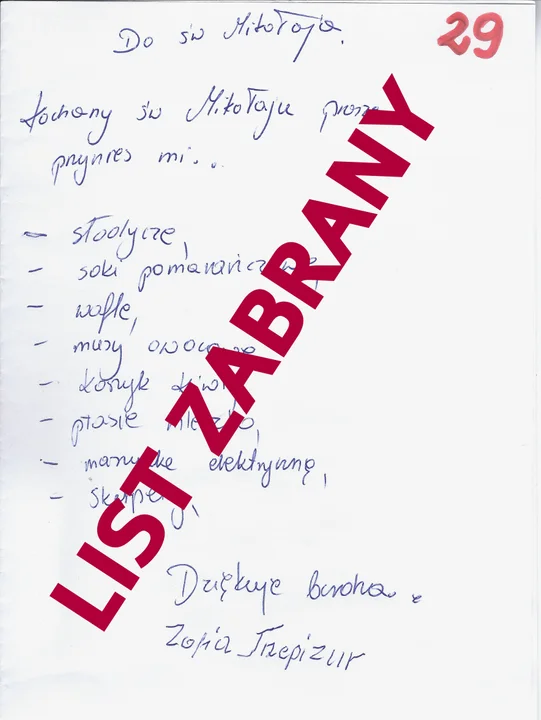 Do św Mikołaja.
29
Kochany św Mikołaju proszę
przynieś mi...
- słodycze,
- soki pomarańczowe,
- wafle,
- musy owocowe
- koszyk kiwi,
- ptasie mleczko,
- maszynkę elektryczną,
- skarpety,
LIST ZABRANY
Dziękuje bardzo.
Zofia